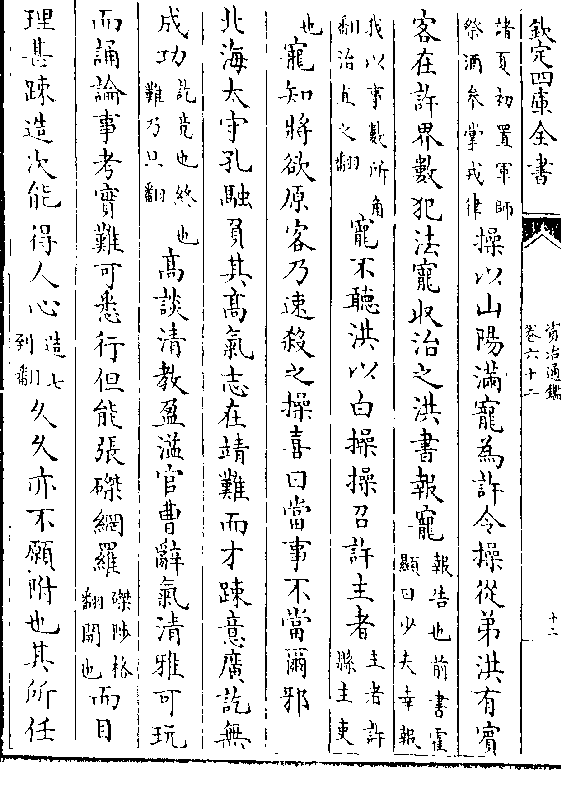 欽定四庫全書
資治通鑑
卷六十二
十二
諸夏初置軍師
祭酒叅掌戎律
操以山陽滿寵為許令操從弟洪有賔
客在許界數犯法寵収治之洪書報寵
報告也前書霍
顯曰少夫幸報
我以事數所角
翻治直之翻
寵不聽洪以白操操召許主者
主者許
縣主吏
也
寵知將欲原客乃速殺之操喜曰當事不當爾邪
北海太守孔融負其髙氣志在靖難而才疎意廣訖無
成功
訖竟也終也
難乃旦翻
髙談清教盈溢官曹辭氣清雅可玩
而誦論事考實難可悉行但能張磔網羅
磔陟格
翻開也
而目
理甚踈造次能得人心
造七
到翻
久久亦不願附也其所任